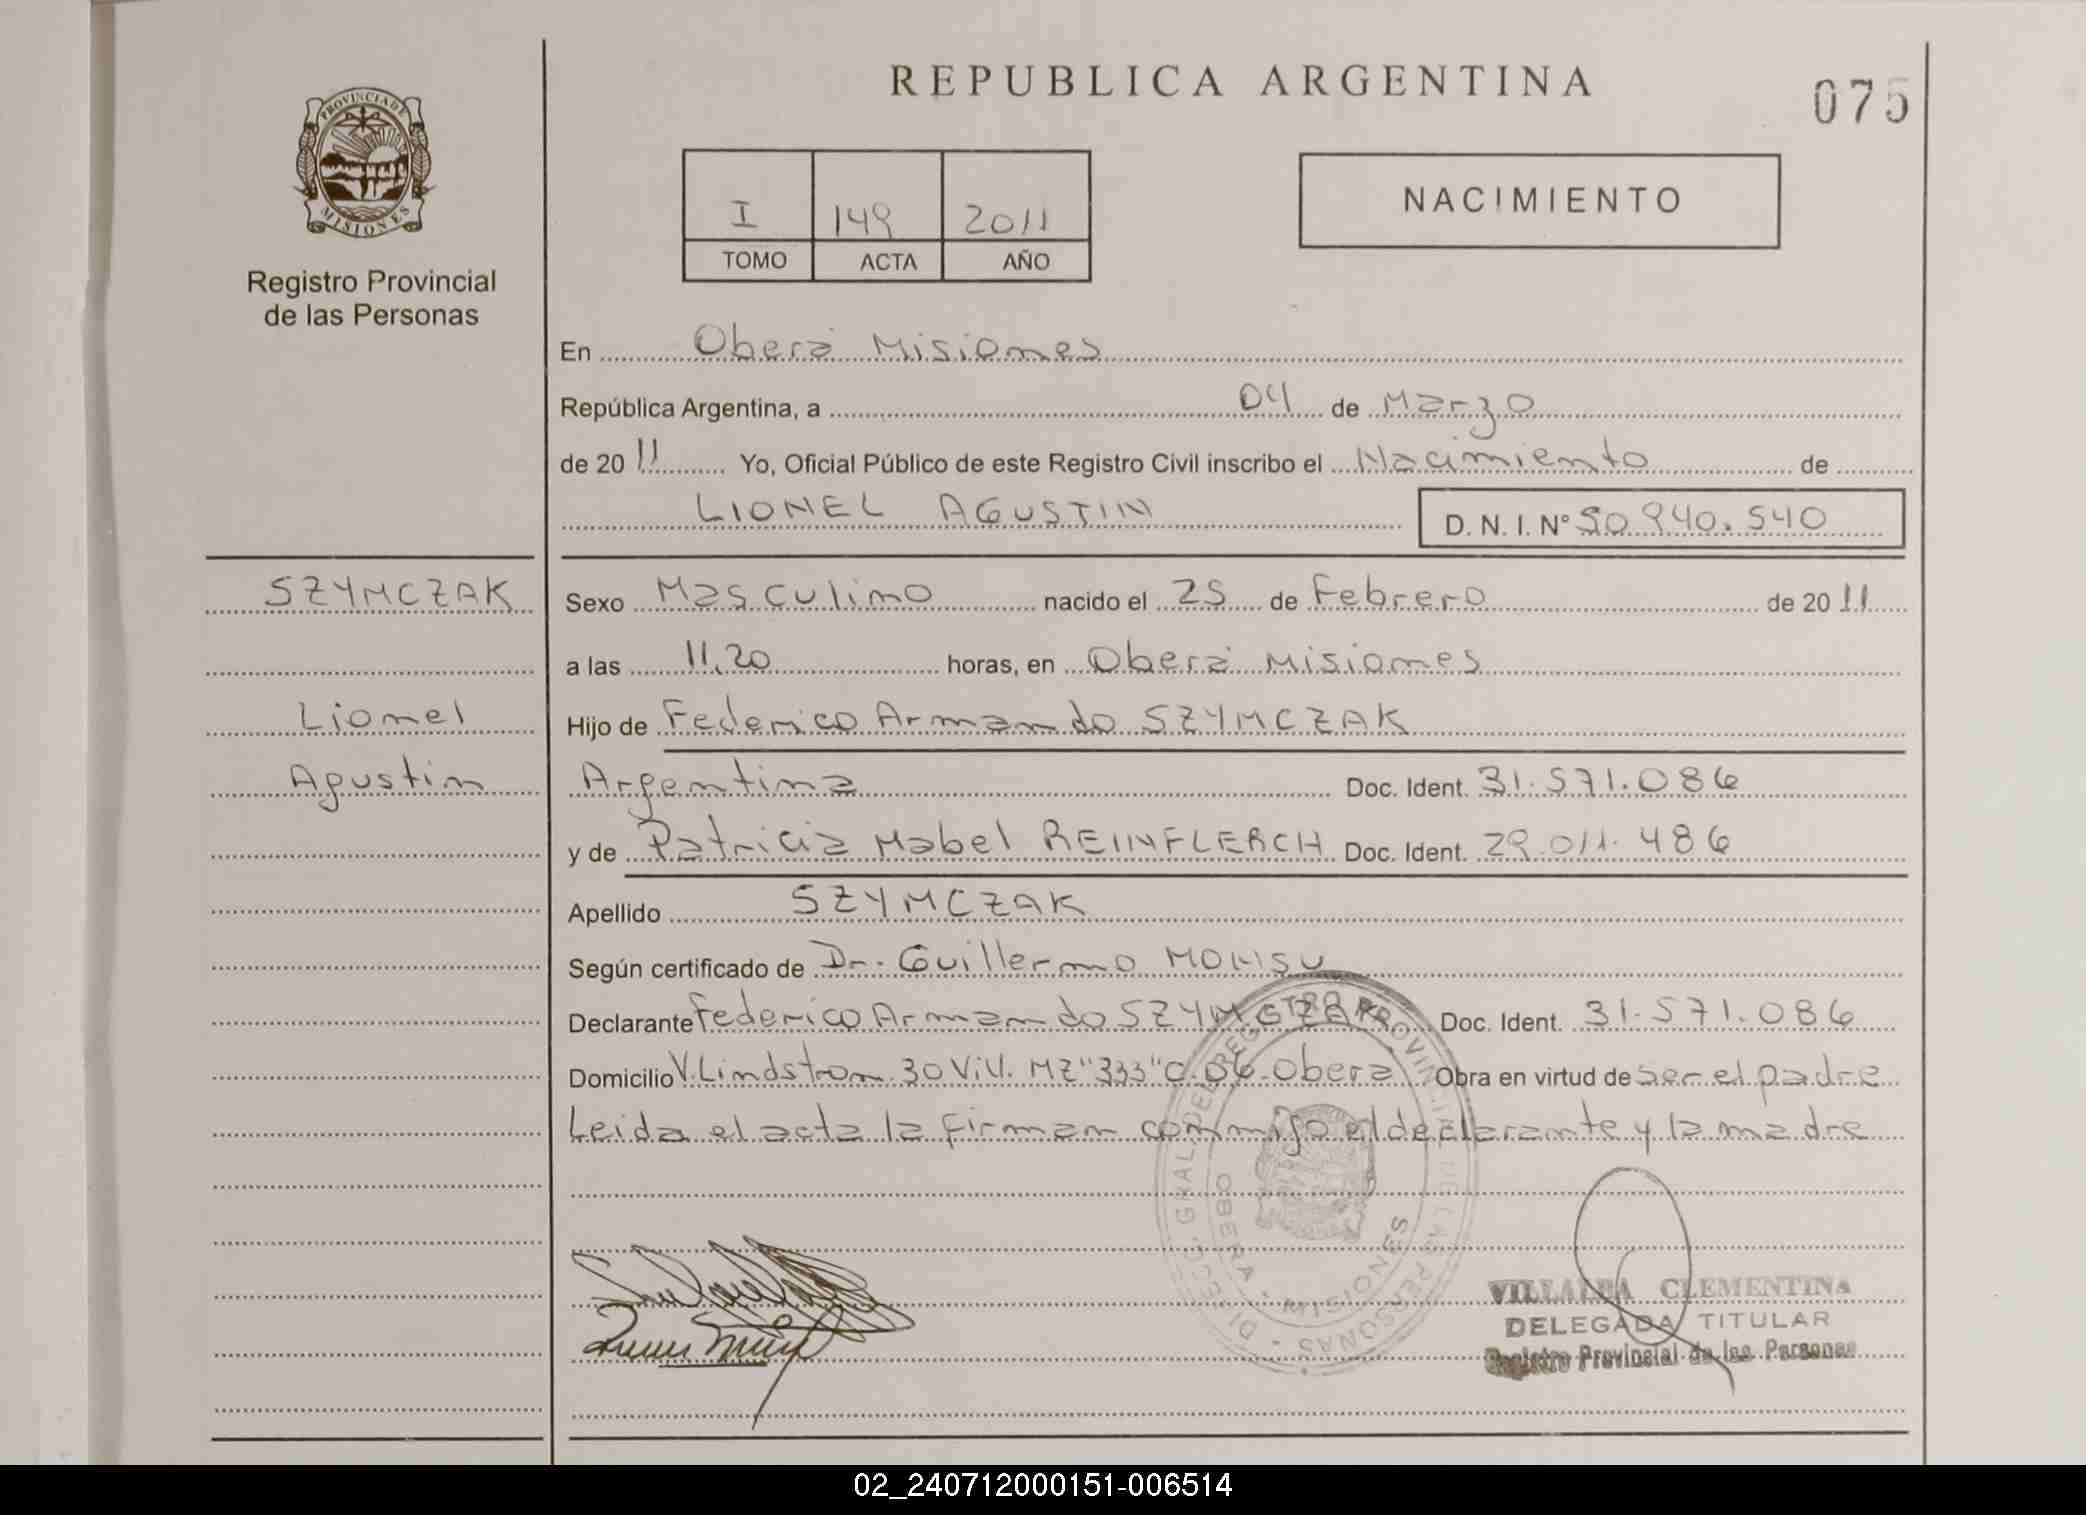 REPUBLICA ARGENTINA
075
PROVINCIA DE
MISIONES
Registro Provincial
de las Personas
I 149 2011
TOMO ACTA AÑO
NACIMIENTO
En Oberá Misiones
República Argentina, a 04 de Marzo
de 2011 Yo, Oficial Público de este Registro Civil inscribo el Nacimiento de
LIONEL AGUSTIN D. N. I. Nº 50.940.540
SZYMCZAK
Lionel
Agustin
Sexo Masculino nacido el 25 de Febrero de 2011
a las 11,20 horas, en Oberá Misiones
Hijo de Federico Armando SZYMCZAK
Argentina Doc. Ident. 31.571.086
y de Patricia Mabel REINFLERCH Doc. Ident. 29.011.486
Apellido SZYMCZAK
Según certificado de Dr. Guillermo
Declarante Federico Armando SZYMCZAK Doc. Ident. 31.571.086
Domicilio V. Lindstrom 30 Viv. MZ "333" C.06. Oberá Obra en virtud de ser el padre
Leida el acta la firman conmigo el declarante y la madre
DIRECC. GRAL DEL REGISTRO PROVINCIAL DE LAS PERSONAS
OBERA - MISIONES
VILLALBA CLEMENTINA
DELEGADA TITULAR
Registro Provincial de las Personas
02_240712000151-006514